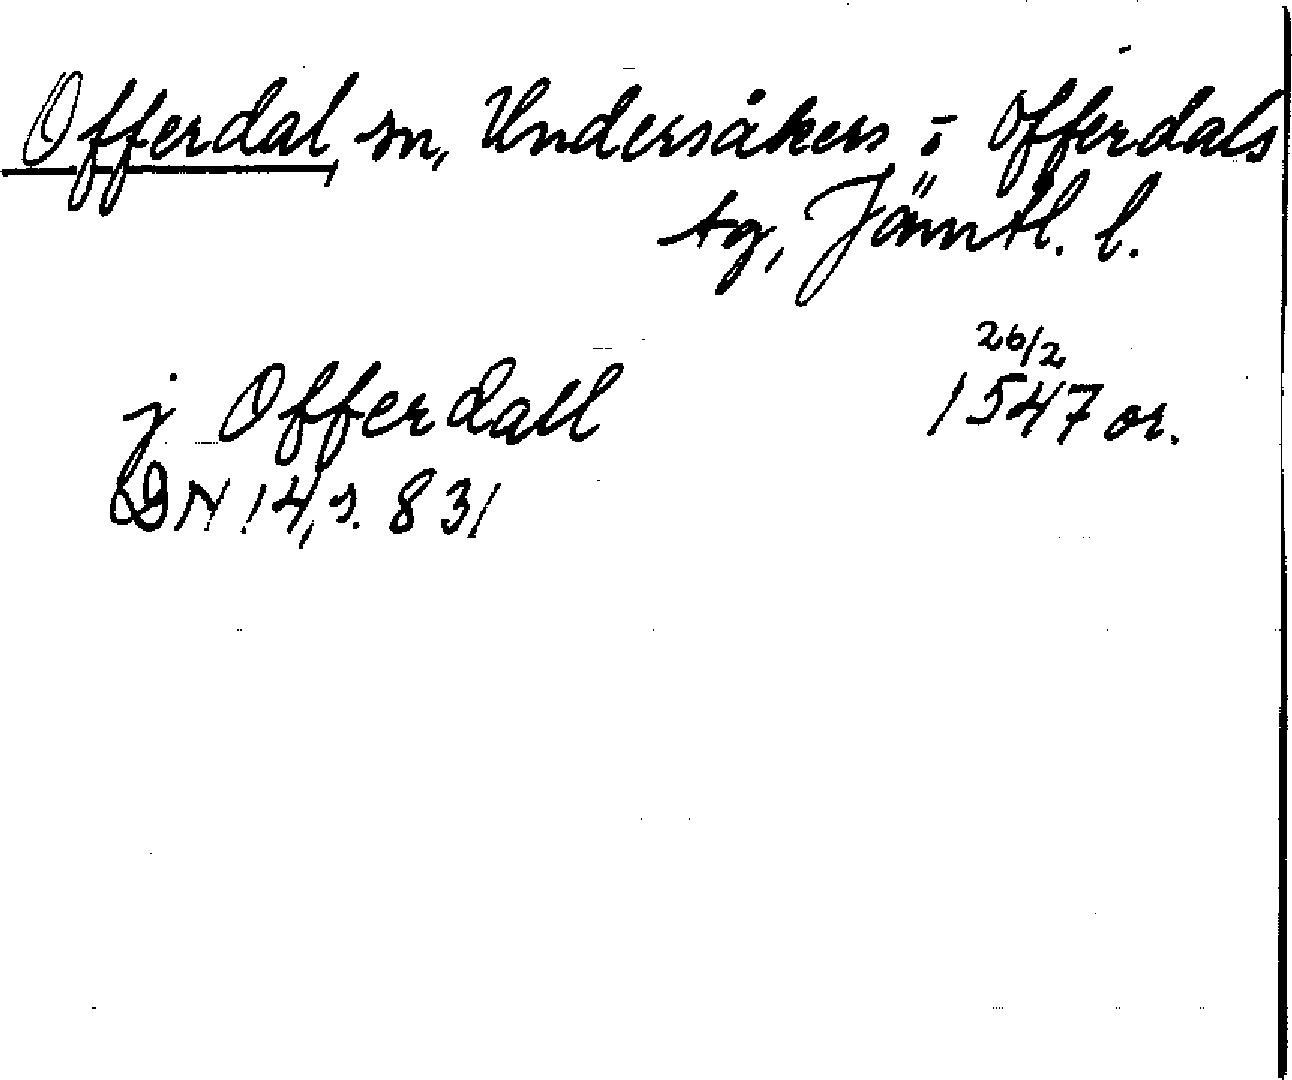 Offerdal, sn, Undersåkers o Offerdals
tg, Jämtl. l.
j Offerdall 26/2 1547 or.
DN 14, s. 831